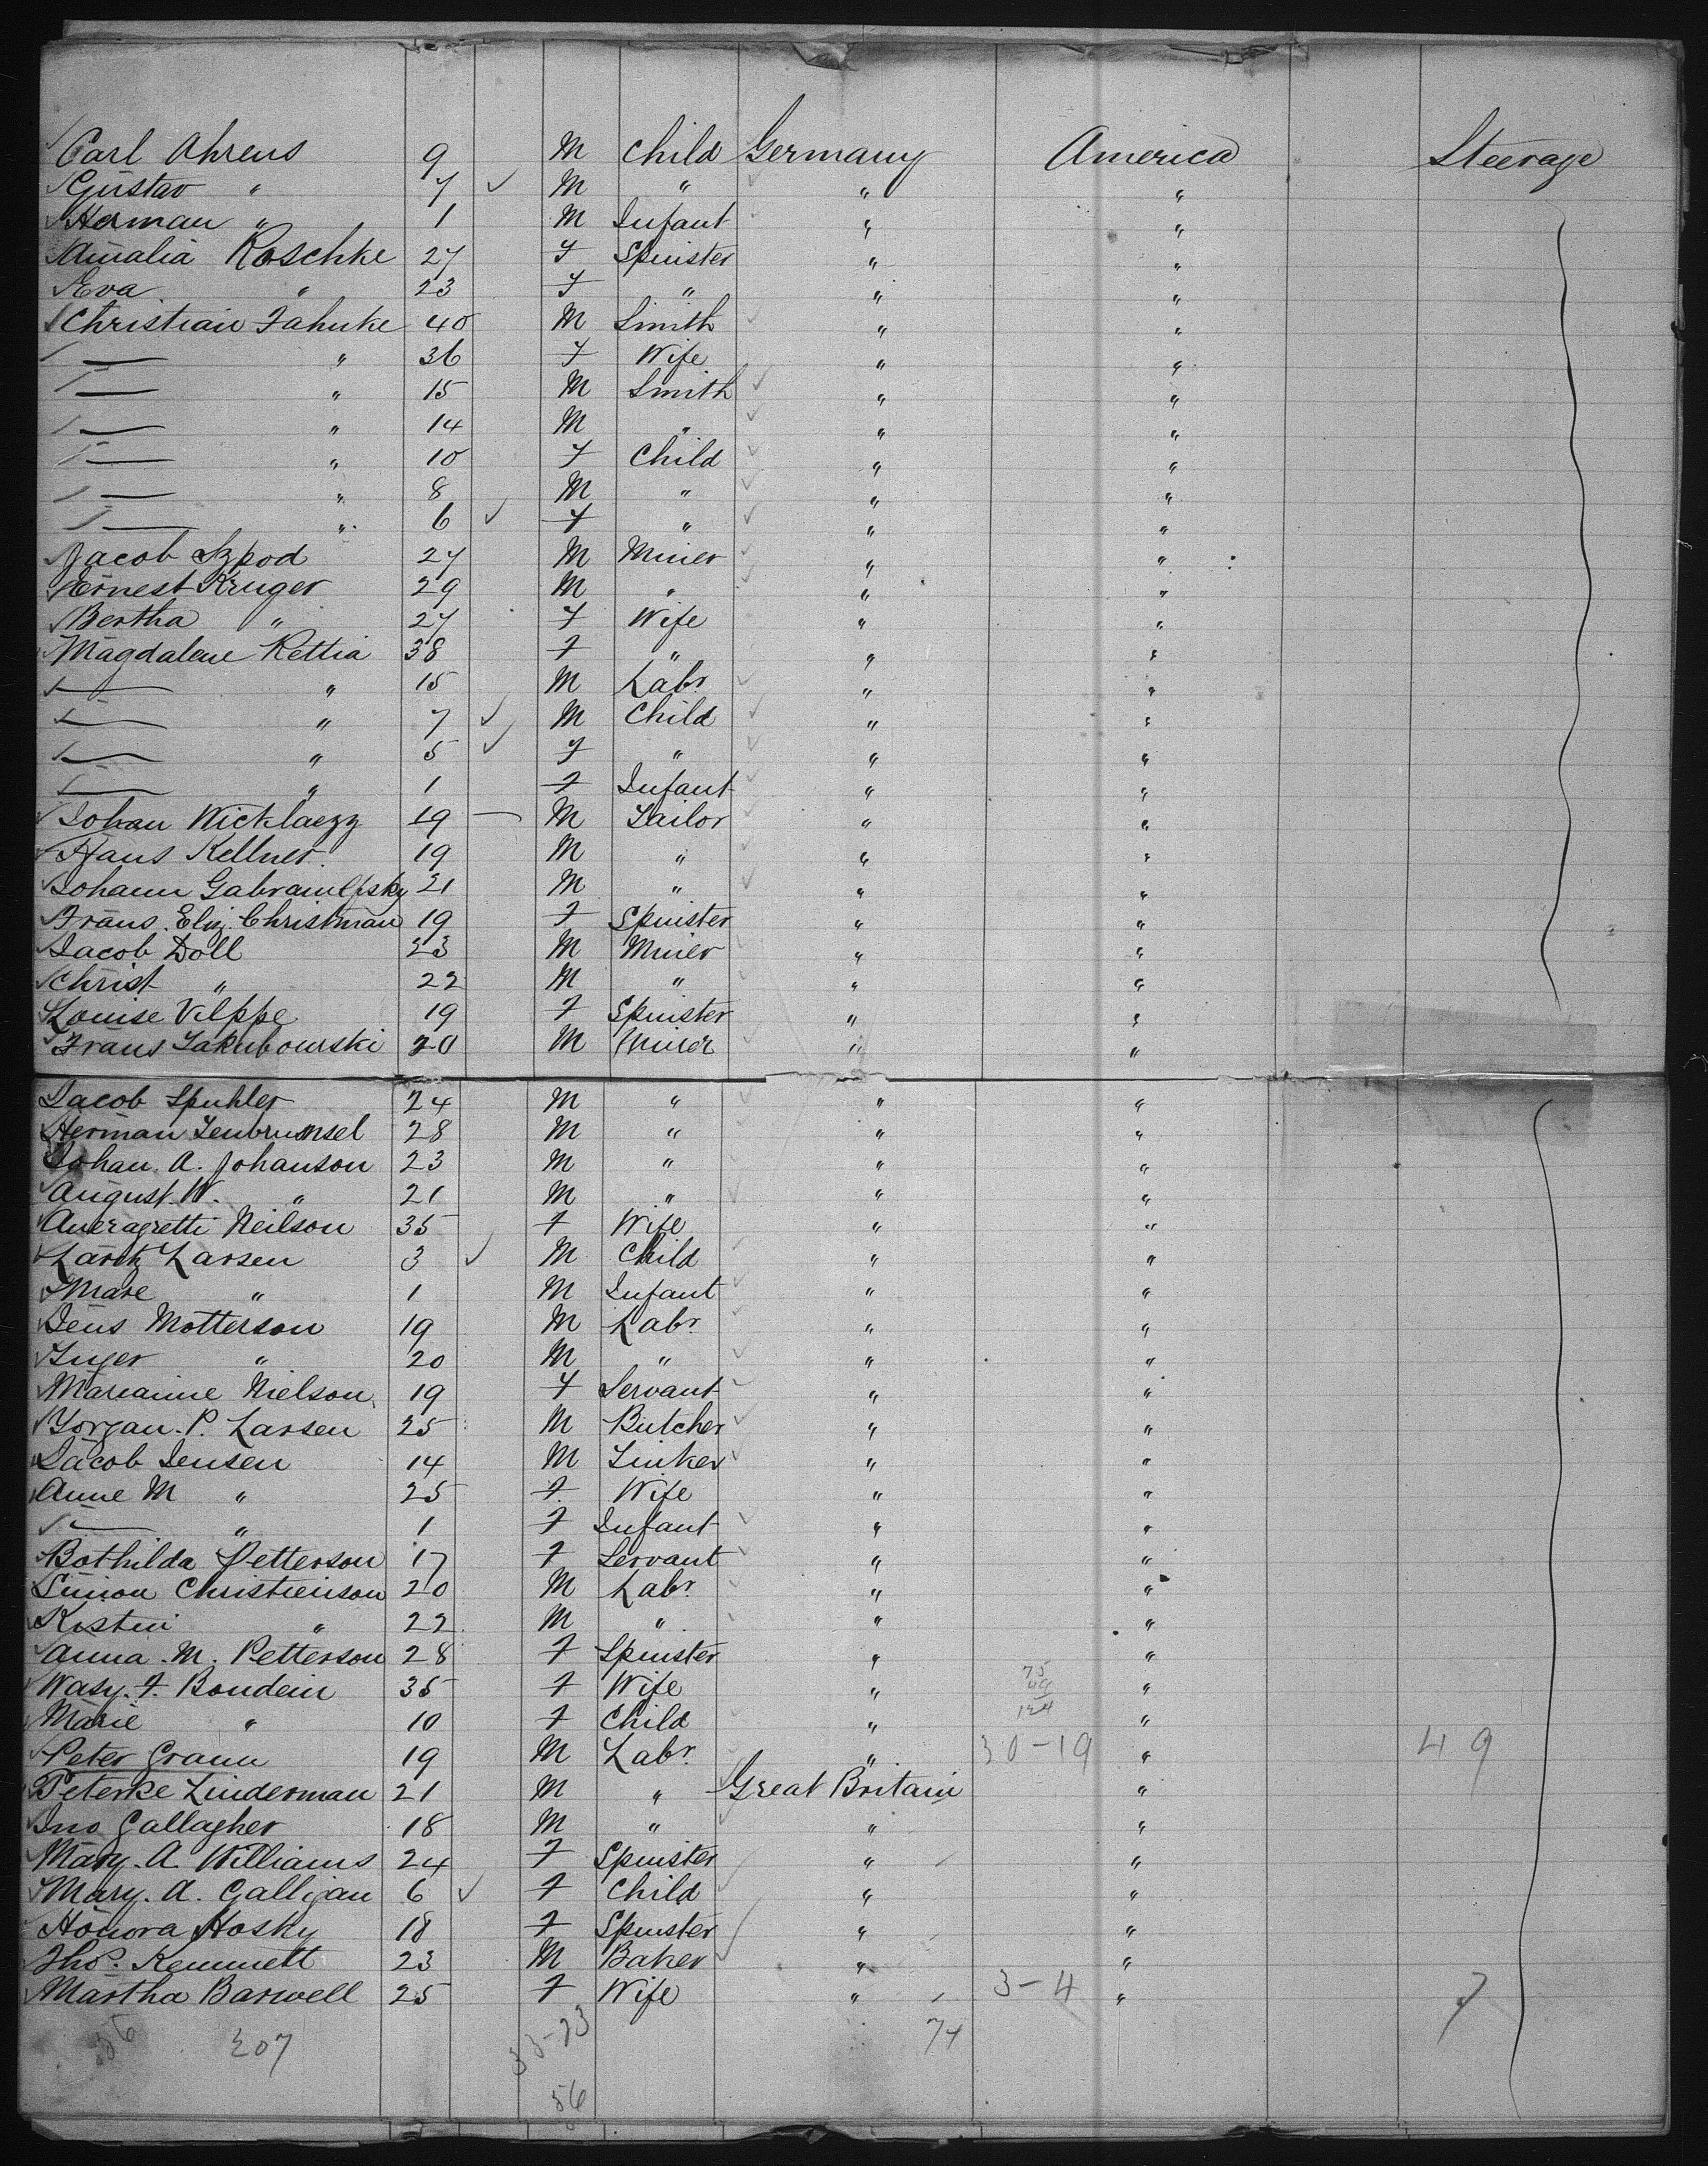 Carl Ahrens 9 M Child Germany America Steerage
Gustav " 7 M " " "
Herman " 1 M Infant " "
Amalia Roschke 27 F Spinster " "
Eva " 23 F " " "
Christian Jahnke 40 M Smith " "
— " 36 F Wife " "
— " 15 M Smith " "
— " 14 M " " "
— " 10 F Child " "
— " 8 M " " "
— " 6 F " " "
Jacob Szpod 27 M Miner " "
Ernest Kruger 29 M " " "
Bertha " 27 F Wife " "
Magdalene Rettia 38 F " " "
— " 15 M Labr " "
— " 7 M Child " "
— " 5 F " " "
— " 1 F Infant " "
Johan 19 — M Tailor " "
Hans Kellner 19 M " " "
Johann 21 M " " "
Frans. Eliz. Christman 19 F Spinster " "
Jacob Doll 23 M Miner " "
Christ " 22 M " " "
Louise Velppe 19 F Spinster " "
Frans Jakubourski 20 M Miner " "
Jacob Spuhler 24 M " " "
Herman 28 M " " "
Johan. A. Johanson 23 M " " "
August. W. " 21 M " " "
Neilson 35 F Wife " "
Larsen 3 M Child " "
Mare " 1 M Infant " "
Jens Motterson 19 M Labr " "
Inger " 20 M " " "
Marianne Nielson 19 F Servant " "
Jorgan. P. Larsen 25 M Butcher " "
Jacob Jensen 14 M Tinker " "
Anne M " 25 F Wife " "
— " 1 F Infant " "
Bothilda Petterson 17 F Servant " "
Simon Christienson 20 M Labr " "
Kistin " 22 M " " "
Anna. M. Petterson 28 F Spinster " "
Wasy. F. Boudein 35 F Wife " 75 49 124 "
Marie " 10 F Child " "
Peter Grann 19 M Labr " 30-19 " 49
Peterke Linderman 21 M " Great Britain "
Jno Gallagher 18 M " " "
Mary. A Williams 24 F Spinster " "
Mary. A. Galligan 6 F Child " "
Honora Hosky 18 F Spinster " "
Thos. Kemmett 23 M Baker " "
Martha Barwell 25 F Wife " 3-4 " 7
56 207 33-23 74
56